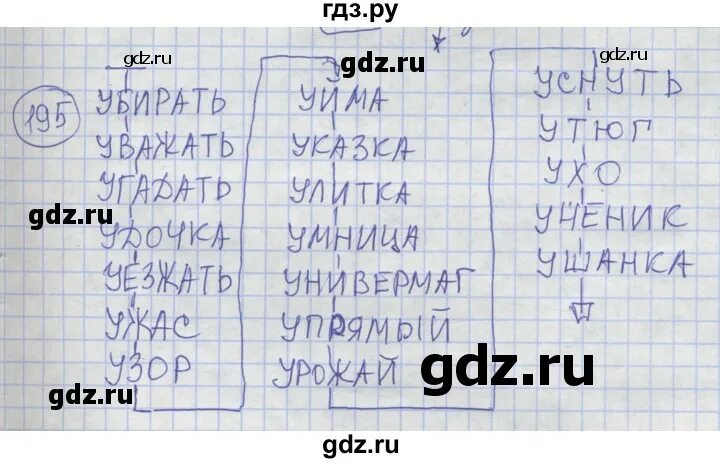 гдз.ру
gdz.ru
gdz.ru
195
УБИРАТЬ
УВАЖАТЬ
УГАДАТЬ
gdz.ru
УДОЧКА
УЕЗЖАТЬ
УЖАС
УЗОР
gdz.ru
gdz.ru
УЙМА
УКАЗКА
gdz.ru
УЛИТКА
УМНИЦА
УНИВЕРМАГ
УПРЯМЫЙ
УРОЖАЙ
gdz.ru
gdz.ru
УСНУТЬ
УТЮГ
УХО
gdz.ru
УЧЕНИК
УШАНКА
gdz.ru
gdz.ru